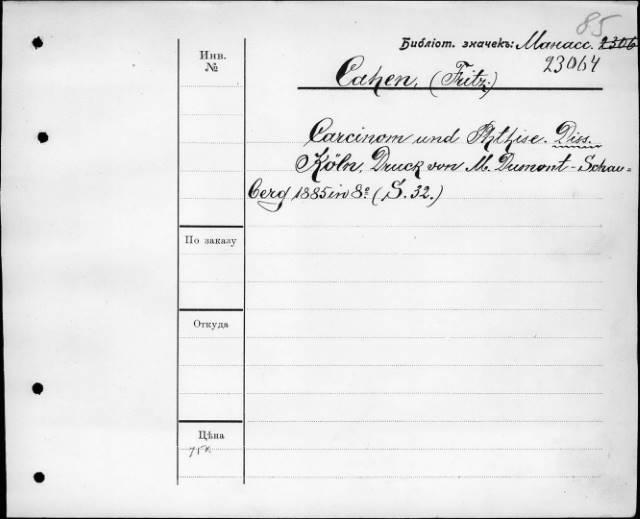 85
Библіот. значекъ: Манасс. 2306
23064
Инв.
№
Cahen, (Fritz)
Carcinom und Phthise. Diss.
Köln, Druck von M. Dumont-Schau-
berg 1885 in 8º (S. 32.)
По заказу
Откуда
Цѣна
75к